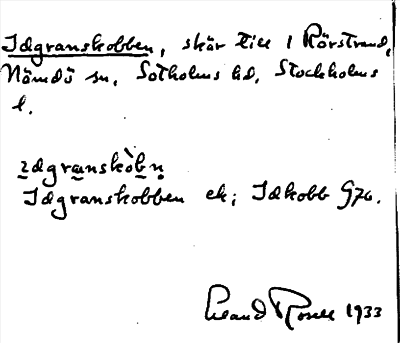 Idgranskobben, skär till 1 Rörstrand,
Nämdö sn, Sotholms hd, Stockholms
l.
ɪdgranskòbṇ
Idgranskobben ek; Idkobb G76.
Roser 1933